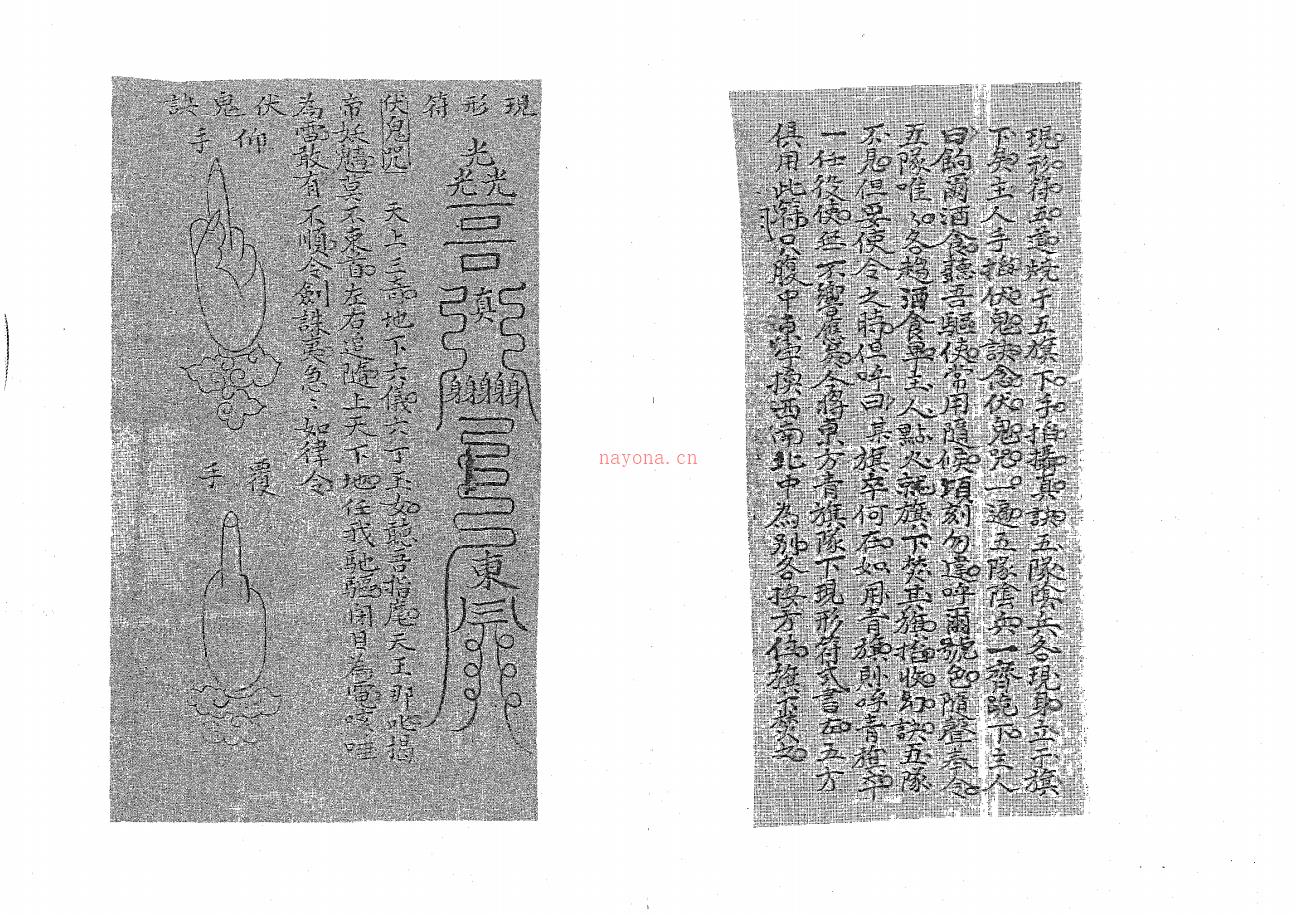 現形符五道燒于五旗下手掐攝真訣五隊陰兵各現身立于旗
下矣主人手掐伏鬼訣念伏鬼咒一遍五隊陰兵一齊跪下主人
曰餉爾酒食聽吾驅使常用隨候頃刻勿違呼爾號色隨聲奉令
五隊唯〻各趨酒食畢主人點火就旗下焚其旗掐收幻訣五隊
不見但要使令之時但呼曰某旗卒何在如用青旗則呼青旗卒
一任役使無不響應矣今將東方青旗隊下現形符式書在五方
俱用此符只腹中東字換西南北中為別各按方位旗下焚之
現形符
光
光光
真
身身身身
東
伏鬼咒 天上三奇地下六儀六丁玉女聽吾指麾天王那吒揭
帝妖魑莫不束首左右追隨上天下地任我馳驅閉目為電咳唾
為雷敢有不順令劍誅夷急〻如律令
伏鬼訣
仰手
覆手
nayona.cn